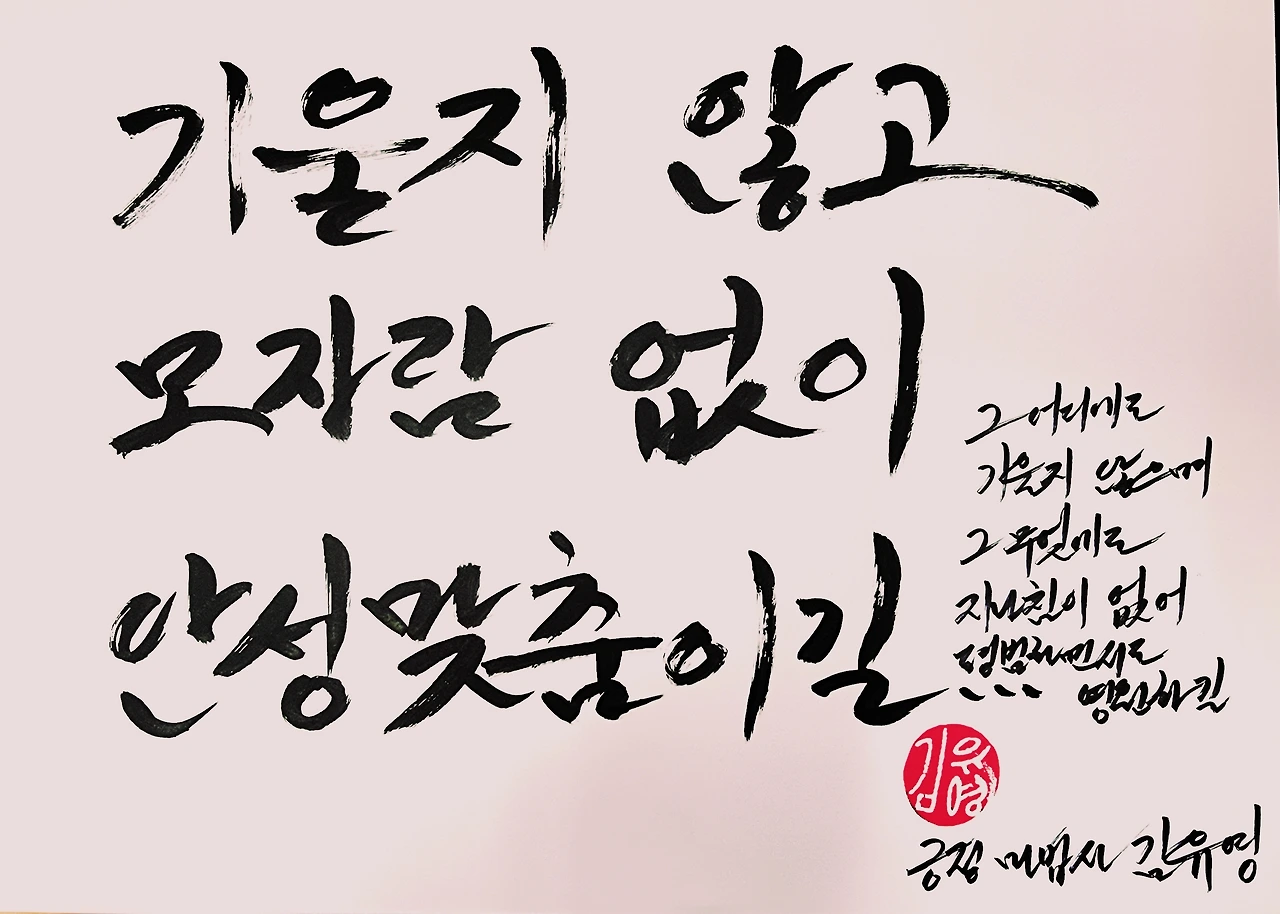 기울지 않고
모자람 없이
안성맞춤이길
그 어디에도
기울지 않으며
그 무엇에도
지나침이 없어
평범하면서도
영원하길
김유영
긍정 마법사 김유영